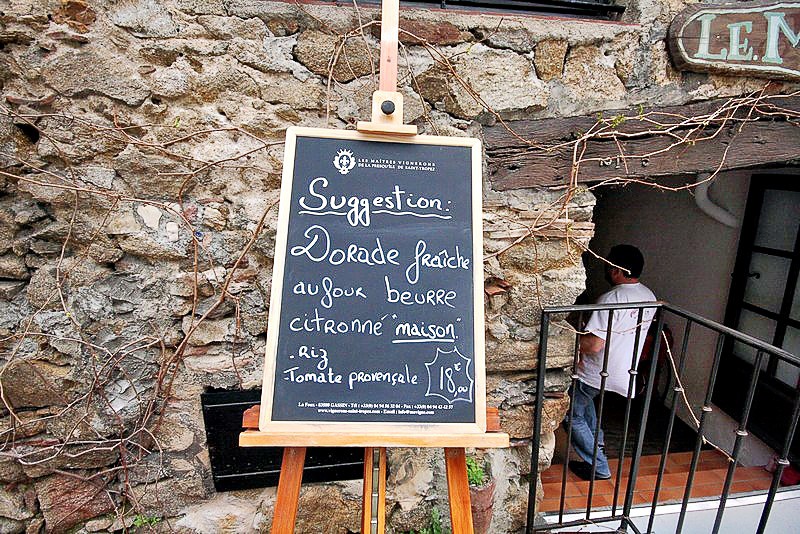 LE.M
LES MAÎTRES VIGNERONS
DE LA PRESQU'ILE DE SAINT-TROPEZ
Suggestion:
Dorade fraîche
au four beurre
citronné "maison".
. Riz
- Tomate provençale
18,00€
La Foux - 83580 GASSIN - Tél : +33(0)4 94 56 32 04 - Fax : +33(0)4 94 43 42 57
www.vignerons-saint-tropez.com - Email : info@mavigne.com